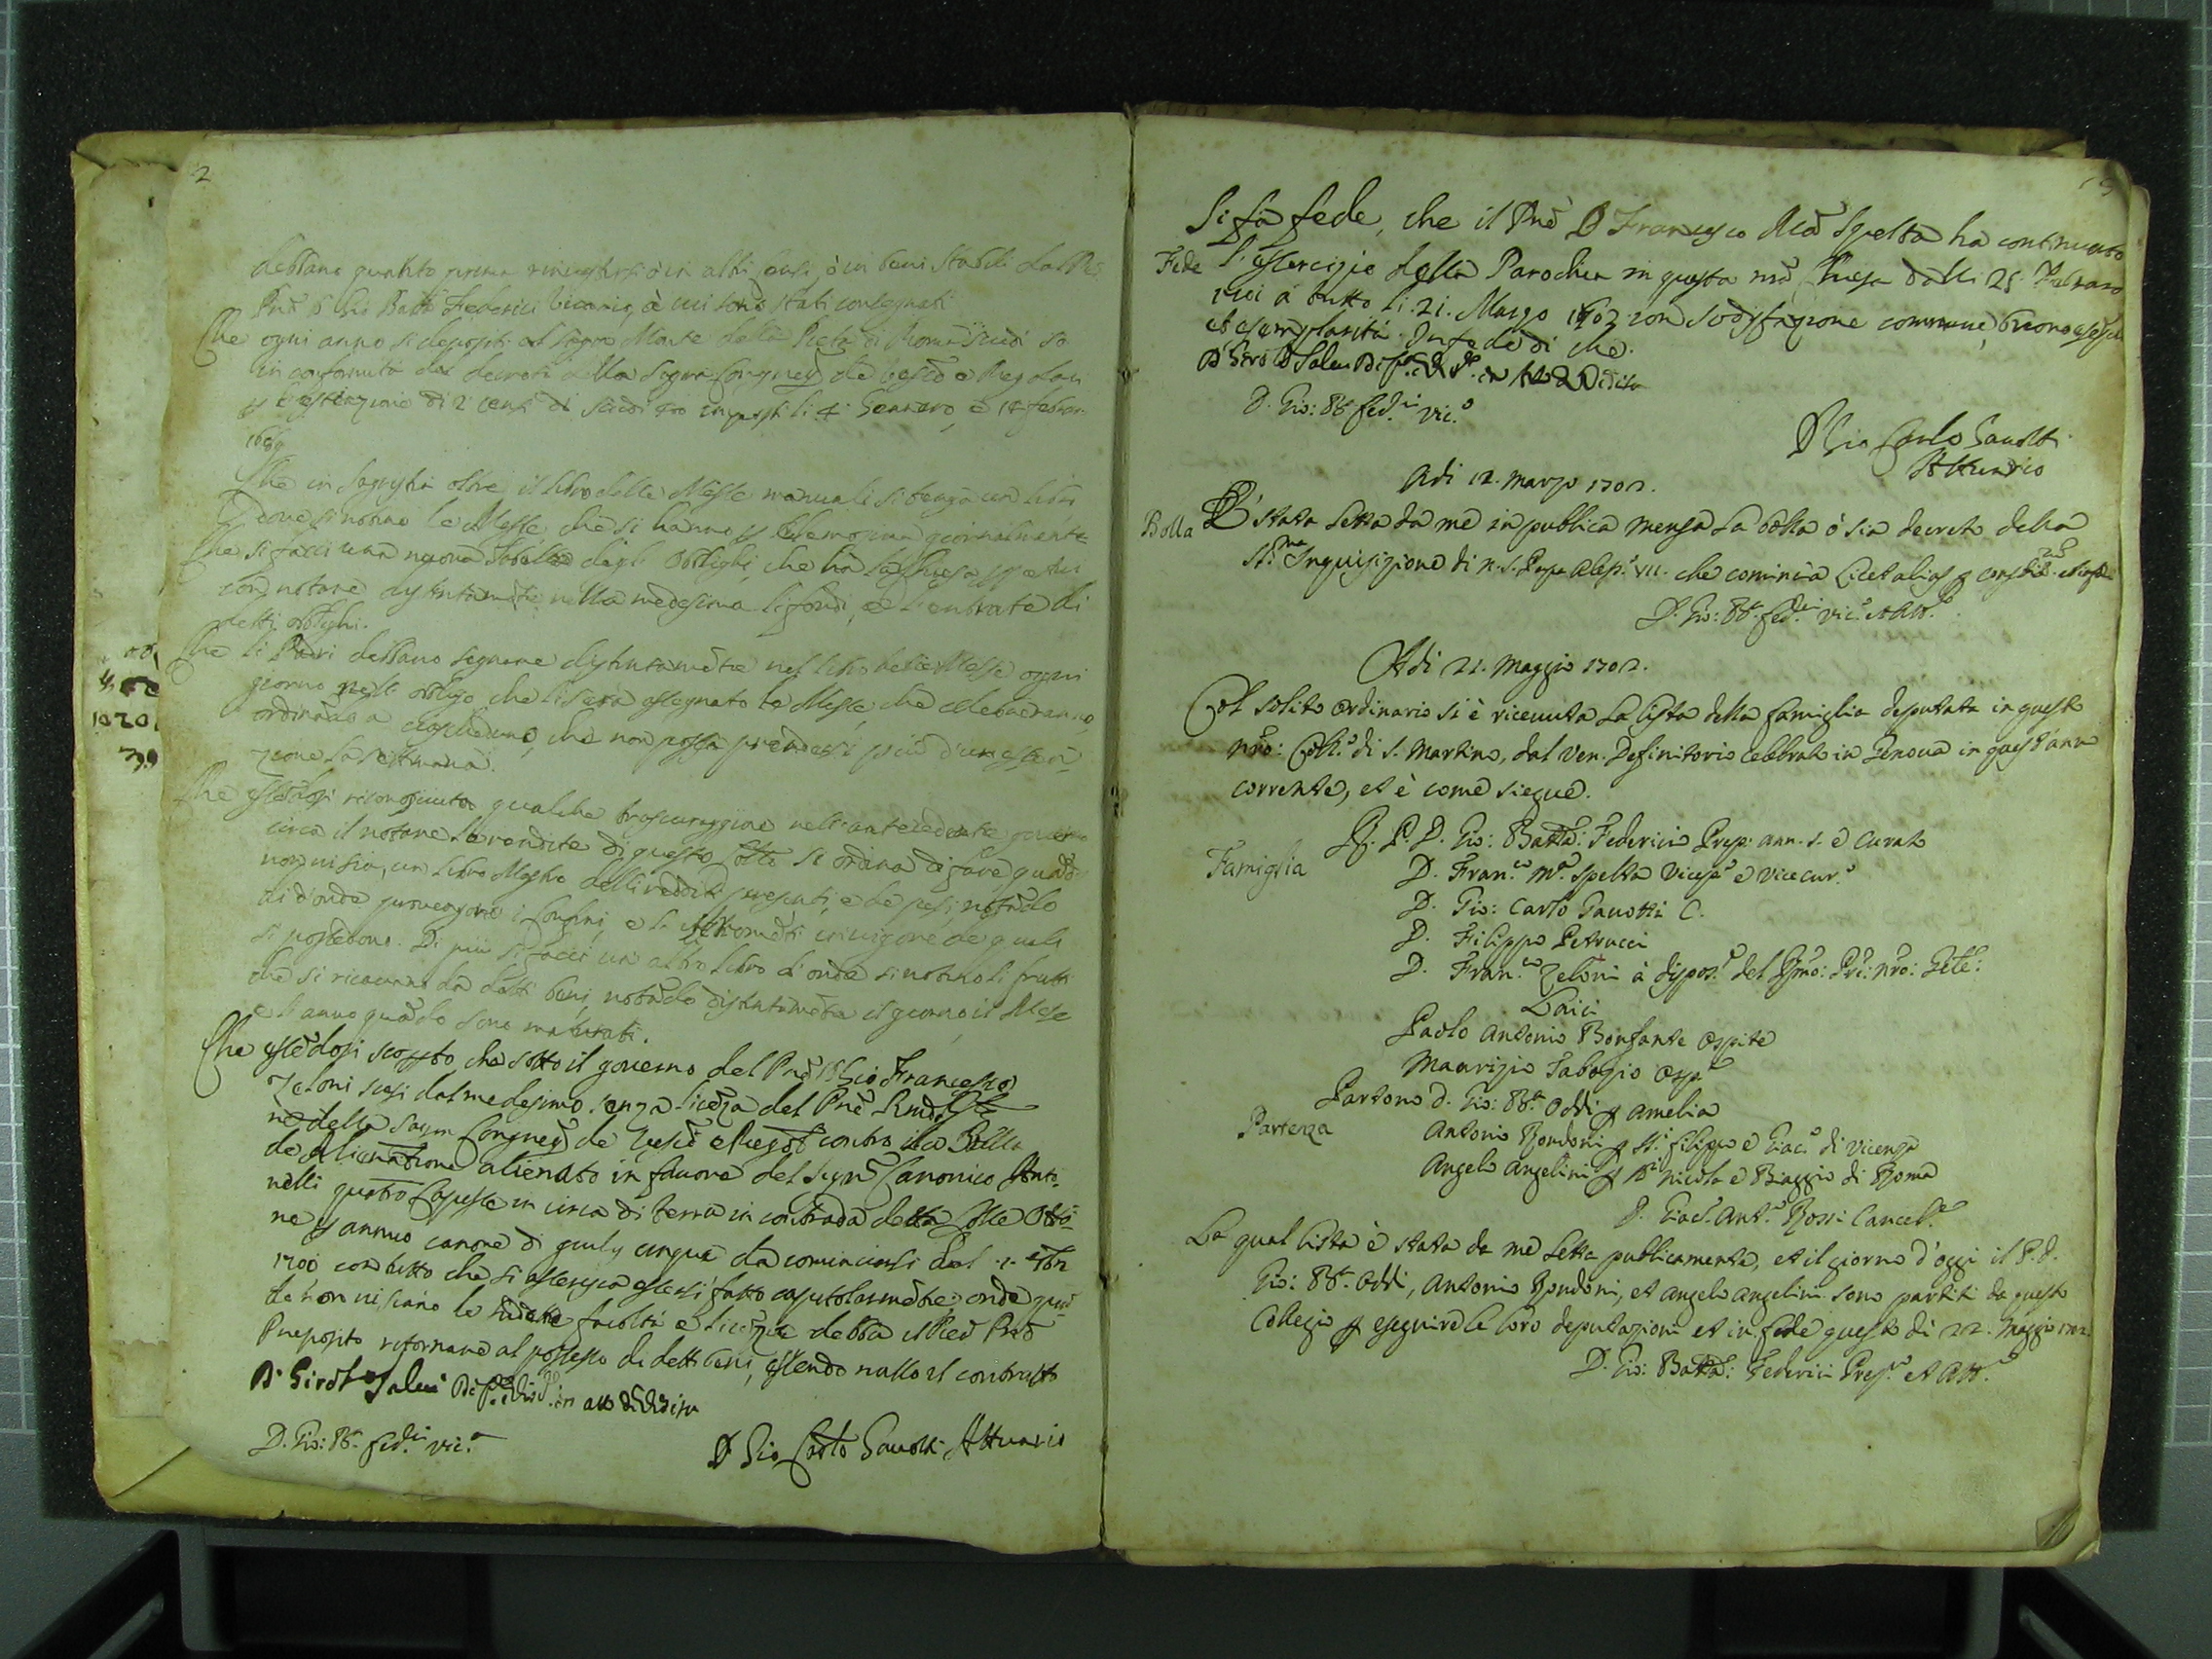 2
debbano quanto prima rinvestirsi ò in altri Censi, ò in beni stabili dal
Prē D Gio Batta Federici Vicario, à cui sono stati consegnati
Che ogni anno si depositi al Sagro Monte della Pietà di Roma scudi 50
in conformità dal decreto della Sagra Congreg.
estinzione di 2 censi di scudi imposti li 4 Gennaro, e 14 febrar.
1689
Che in Sagrestia oltre il libro delle Messe manuali si tenga un libro
dove si notino le Messe, che si hanno elemosina giornalmente
Che si facci una nuova Tabella degli Oblighi, che hà la Chiesa
con notare distintamēte nella medesima li fondi, e l'entrata di
detti oblighi.
Che li Padri debbano segnare distintamēte nel libro delle Messe ogni
giorno nell'obligo che li sarà assegnato le Messe, che celebraranno,
ordinādo a ciascheduno, che non possa prendersi più d'un
zione la settimana.
Che essēdosi riconosciuta qualche trascuraggine nell'antecedente governo
circa il notare le rendite di questo Colle si ordina di fare, quādo
non vi sia, un libro Mastro delli redditi presenti, e de pesi, notādo
di d'onde provengono i Confini, e li Istromēti in vigore de quali
si possedono. Di più si facci un altro libro di onde si notino li frutti
che si ricavano da detti beni, notādo distintamēte il giorno, il Mese
e l'anno quādo sono maturati.
Che essēdosi scoperto che sotto il governo del Prē D Gio Francesco
Zeloni siasi dal medesimo senza licēza del Prē Rmō Gle
nè della Sagra Congreg de Vesc e Regol contro la Bolla
de Alienatione alienato in favore del Sigr Canonico Anto-
nelli quatro Copelle in circa di terra in contrada detta Colle Otto
ne annuo canone di giulij cinque da cominciarsi dal 1. 7bre
1700 con tutto che si asserisca essersi fatto capitolarmēte; onde quā
do non vi siano le sudette facoltà e licēze debba il Pred Prē
Preposito ritornare al possesso di detti beni, essendo nullo il contratto
D Girol Salvi in atto di Visita
D. Gio: Bta Fed.ci Vic.o
D Gio Carlo Gavotti Attuario
Si fà fede, che il Prē D Francesco Mā Spelta ha continuato
Fede l'essercizio della Parochia in questa nrā Chiesa dalli 25 Febraro
fin à tutto li 21. Marzo 1702 con sodisfazione commune,
et esemplarità. In fede di che.
D Girol Salvi in atto di Visita
D. Gio: Bta Fed.ci Vic.o
D Gio Carlo Gavotti
Attuario
Adi 12. Marzo 1702.
Bolla E' stata letta da me in publica mensa la bolla ò sia decreto della
Sta. Inquisizione di N. S. Papa Aless.o VII. che comincia Licet alias
D. Gio: Bta Fed.ci Vic.o et Att.o
Adi 21. Maggio 1702.
Col solito ordinario si è ricevuta la lista della famiglia deputata in questo
nro: Coll.o di S. Martino, dal Ven. Definitorio celebrato in Genova in quest'anno
corrente, et è come siegue.
Famiglia
P. D. Gio: Batta: Federici Prep: ann. 1. e Curato
D. Fran.co Ma. Spelta Vicep.o e Vicecur.o
D. Gio: Carlo Gavotti C.
D. Filippo Petrucci
D. Fran.co Zeloni à dispos.e del Rmo: Pre: nro: Gnle:
Laici
Paolo Antonio Bonfante Ospite
Maurizio Tabogio Osp.e
Partenza
Partono D. Gio: Bta Oddi p Amelia
Antonio Rondoni p Sti Filippo e Giac.o di Vicenza
Angelo Angelini p Sti Nicola e Biaggio di Roma
D. Giac. Ant.o Rossi Cancel.e
La qual lista è stata da me letta publicamente, et il giorno d'oggi il P. D.
Gio: Bta Oddi, Antonio Rondoni, et Angelo Angelini sono partiti da questo
Collegio p eseguire le loro deputazioni et in fede questo di 22. Maggio 1702.
D. Gio: Batta: Federici Prep.to et Att.o